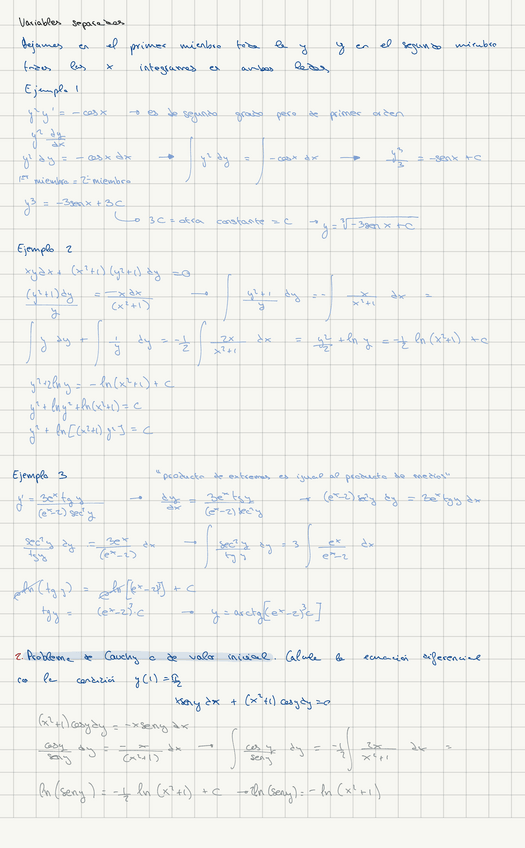 Variables separadas
Dejamos en el primer miembro toda la y y en el segundo miembro
todas las x integramos en ambos lados
Ejemplo 1
y²y' = -cosx → es de segundo grado pero de primer orden
y² dy/dx
y² dy = -cosx dx → ∫ y² dy = ∫ -cosx dx → y³/3 = -senx + C
1er miembro = 2º miembro
y³ = -3senx + 3C
↳ 3C = otra constante = C → y = ∛(-3senx + C)
Ejemplo 2
xydx + (x²+1)(y²+1)dy = 0
(y²+1)dy/y = -xdx/(x²+1) → ∫ (y²+1)/y dy = -∫ x/(x²+1) dx =
∫ y dy + ∫ 1/y dy = -1/2 ∫ 2x/(x²+1) dx = y²/2 + ln y = -1/2 ln(x²+1) + C
y²+2lny = -ln(x²+1) + C
y² + lny² + ln(x²+1) = C
y² + ln[(x²+1)y²] = C
Ejemplo 3 "producto de extremos es igual al producto de medios"
y' = 3eˣ tgy/(eˣ-2)sec²y → dy/dx = 3eˣ tgy/(eˣ-2)sec²y → (eˣ-2)sec²y dy = 3eˣ tgy dx
sec²y/tgy dy = 3eˣ/(eˣ-2) dx → ∫ sec²y/tgy dy = 3 ∫ eˣ/(eˣ-2) dx
ln(tgy) = ln[eˣ-2)³] + C
tgy = (eˣ-2)³C → y = arctg[(eˣ-2)³C]
2. Problema de Cauchy o de valor inicial. Calcula la ecuación diferencial
con la condición y(1) = π/2
xseny dx + (x²+1) cosydy = 0
(x²+1)cosydy = -xseny dx
cosy/seny dy = -x/(x²+1) dx → ∫ cosy/seny dy = -1/2 ∫ 2x/(x²+1) dx =
ln(seny) = -1/2 ln(x²+1) + C → 2ln(seny) = -ln(x²+1)